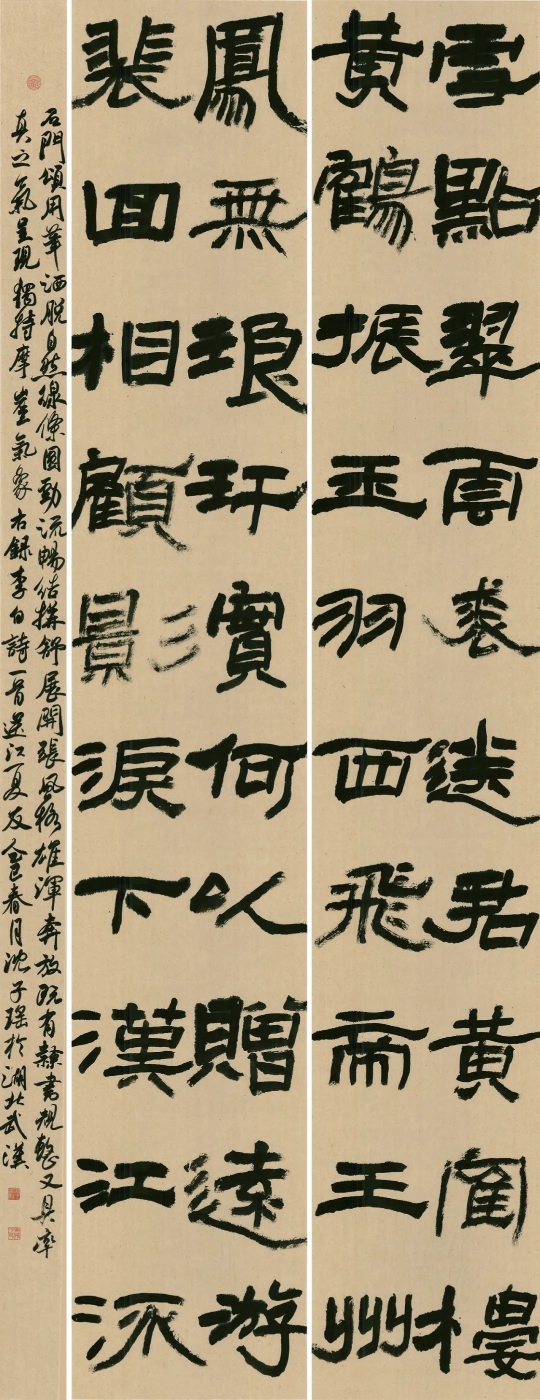 雪點翠雲裘送君黄隺樓
黄鶴振玉羽西飛帝王州
鳳無琅玕實何以贈遠游
裴回相顧影淚下漢江流
石門頌用筆洒脱自然線條圓勁流暢結構舒展開張風格雄渾奔放既有隸書規整又具率
真之氣呈現獨特摩崖氣象右録李白詩一首送江夏友乙巳春月沈子瑶於湖北武漢